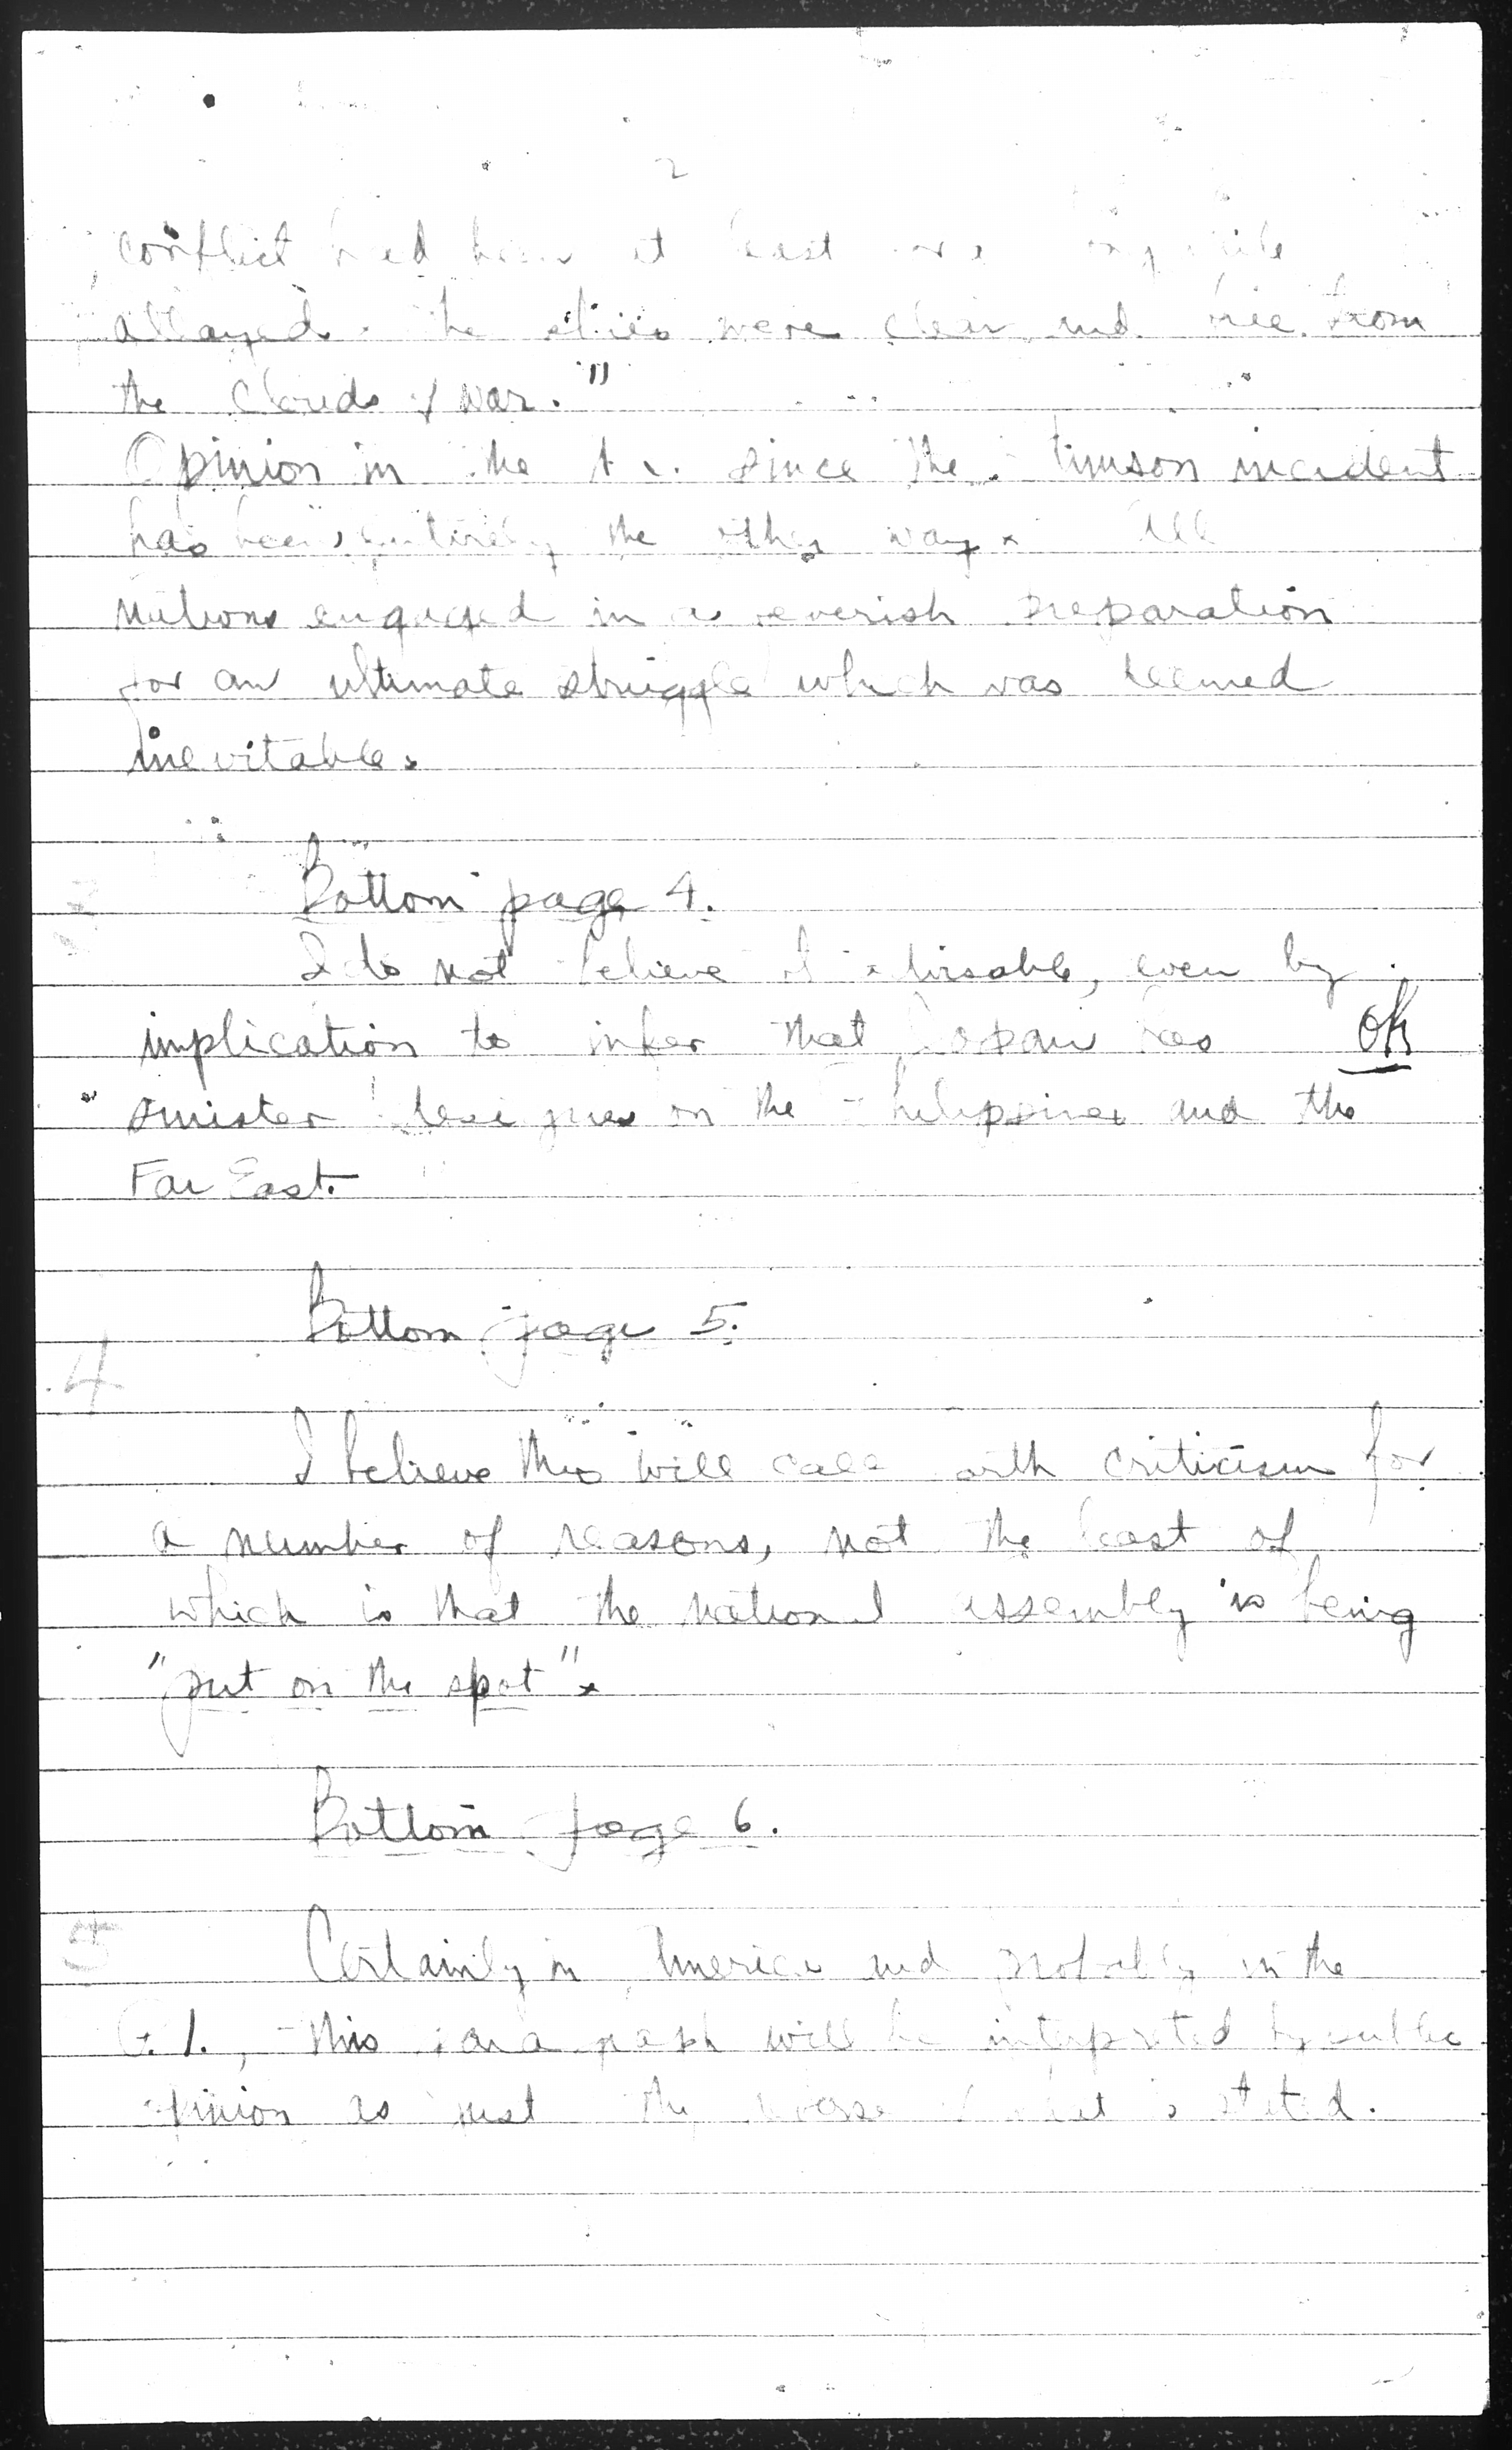 2
conflict had been at least for a long while
allayed. The skies were clear and free from
the clouds of war."
Opinion in the U.S. since the Stimson incident
has been entirely the other way. All
nations engaged in a feverish preparation
for an ultimate struggle which was deemed
inevitable.
Bottom page 4.
I do not believe it advisable, even by
implication to infer that Japan has ok
sinister designs on the Philippines and the
Far East.
Bottom page 5.
4
I believe this will call forth criticism for
a number of reasons, not the least of
which is that the national assembly is being
"put on the spot".
Bottom page 6.
5
Certainly in America and probably in the
P.I., this paragraph will be interpreted by public
opinion as just the reverse of what is stated.